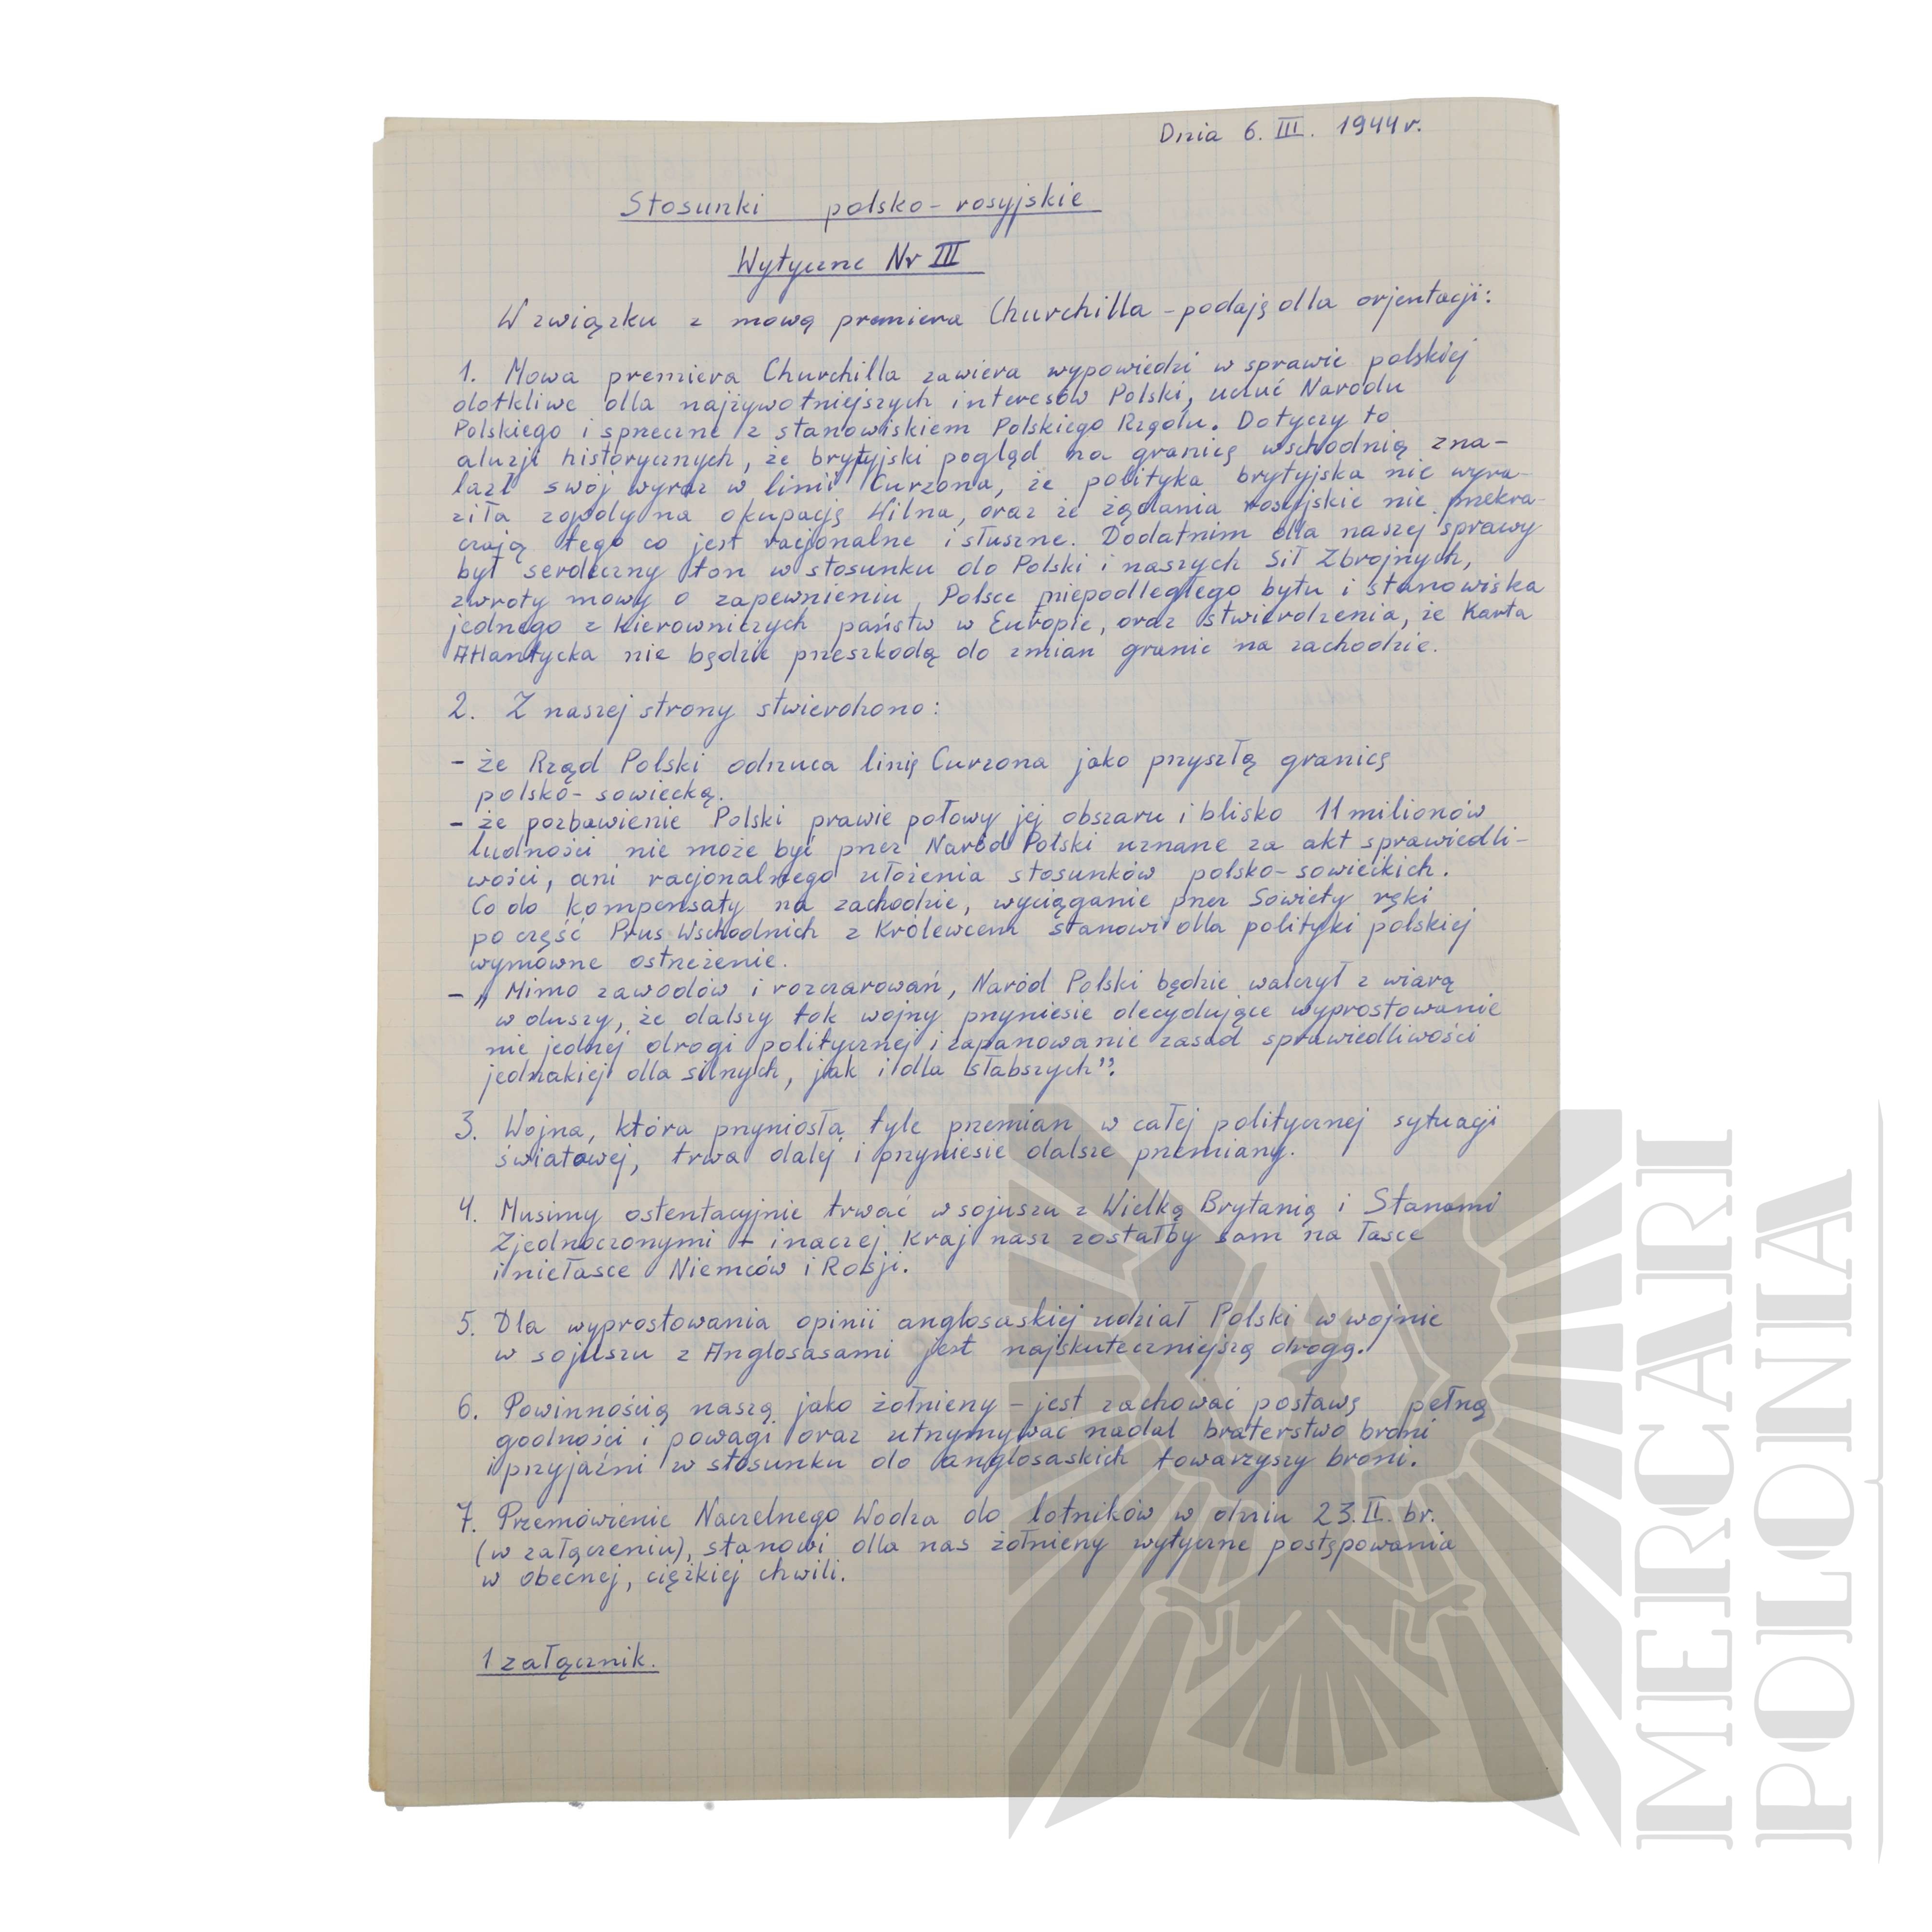 Dnia 6. III. 1944 r.
Stosunki polsko-rosyjskie
Wytyczne Nr III
W związku z mową premiera Churchilla - podaję dla orjentacji:
1. Mowa premiera Churchilla zawiera wypowiedzi w sprawie polskiej
dotkliwe dla najżywotniejszych interesów Polski, uczuć Narodu
Polskiego i sprzeczne z stanowiskiem Polskiego Rządu. Dotyczy to
aluzji historycznych, że brytyjski pogląd na granicę wschodnią zna-
lazł swój wyraz w linii Curzona, że polityka brytyjska nie wyra-
ziła zgody na okupację Wilna, oraz że żądania rosyjskie nie przekra-
czają tego co jest racjonalne i słuszne. Dodatnim dla naszej sprawy
był serdeczny ton w stosunku do Polski i naszych Sił Zbrojnych,
zwroty mowy o zapewnieniu Polsce niepodległego bytu i stanowiska
jednego z kierowniczych państw w Europie, oraz stwierdzenia, że Karta
Atlantycka nie będzie przeszkodą do zmian granic na zachodzie.
2. Z naszej strony stwierdzono:
- że Rząd Polski odrzuca linię Curzona jako przyszłą granicę
polsko-sowiecką.
- że pozbawienie Polski prawie połowy jej obszaru i blisko 11 milionów
ludności nie może być przez Naród Polski uznane za akt sprawiedli-
wości, ani racjonalnego ułożenia stosunków polsko-sowieckich.
Co do kompensaty na zachodzie, wyciąganie przez Sowiety ręki
po część Prus Wschodnich z Królewcem stanowi dla polityki polskiej
wymowne ostrzeżenie.
- „Mimo zawodów i rozczarowań, Naród Polski będzie walczył z wiarą
w duszy, że dalszy tok wojny przyniesie decydujące wyprostowanie
nie jednej drogi politycznej i zapanowanie zasad sprawiedliwości
jednakiej dla silnych, jak i dla słabszych”.
3. Wojna, która przyniosła tyle przemian w całej politycznej sytuacji
światowej, trwa dalej i przyniesie dalsze przemiany.
4. Musimy ostentacyjnie trwać w sojuszu z Wielką Brytanią i Stanami
Zjednoczonymi - inaczej Kraj nasz zostałby sam na łasce
i niełasce Niemców i Rosji.
5. Dla wyprostowania opinii anglosaskiej udział Polski w wojnie
w sojuszu z Anglosasami jest najskuteczniejszą drogą.
6. Powinnością naszą jako żołnierzy - jest zachować postawę pełną
godności i powagi oraz utrzymywać nadal braterstwo broni
i przyjaźni w stosunku do anglosaskich towarzyszy broni.
7. Przemówienie Naczelnego Wodza do lotników w dniu 23.II. br.
(w załączeniu), stanowi dla nas żołnierzy wytyczne postępowania
w obecnej, ciężkiej chwili.
1 załącznik.
MERCARI
POLONIA